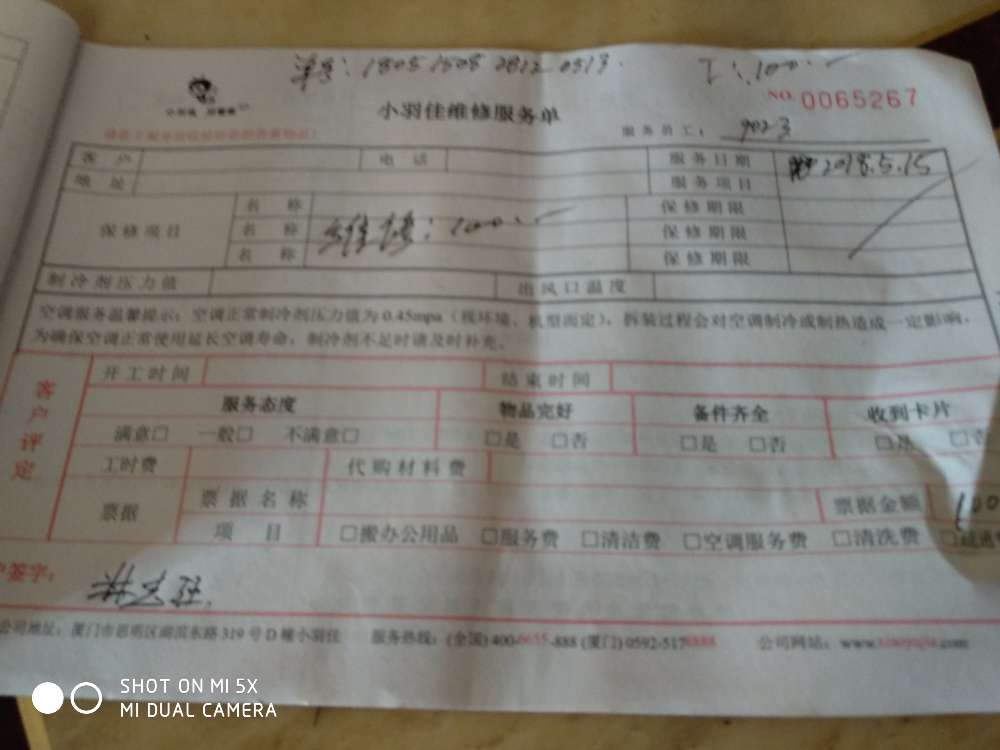 单号：1805 1508 2812 0313. 工：100.—
小羽佳维修服务单
NO. 0065267
服务员工： 902-3
客户 电话 服务日期 2018.5.15
地址 服务项目
保修项目 名称 保修期限
名称 保修期限
维修：100.—
名称 保修期限
制冷剂压力值 出风口温度
空调服务温馨提示：空调正常制冷剂压力值为0.45mpa（视环境、机型而定），拆装过程会对空调制冷或制热造成一定影响。
为确保空调正常使用延长空调寿命，制冷剂不足时请及时补充。
客户评定
开工时间 结束时间
服务态度 物品完好 备件齐全 收到卡片
满意□ 一般□ 不满意□ □是 □否 □是 □否 □是 □否
工时费 代购材料费
票据 票据名称 票据金额 100
项目 □搬办公用品 □服务费 □清洁费 □空调服务费 □清洗费
户签字：
公司地址：厦门市思明区湖滨东路319号D幢小羽佳 服务热线：(全国) 400-6655-888 (厦门) 0592-5178888 公司网站：www.xiaoyujia.com
SHOT ON MI 5X
MI DUAL CAMERA